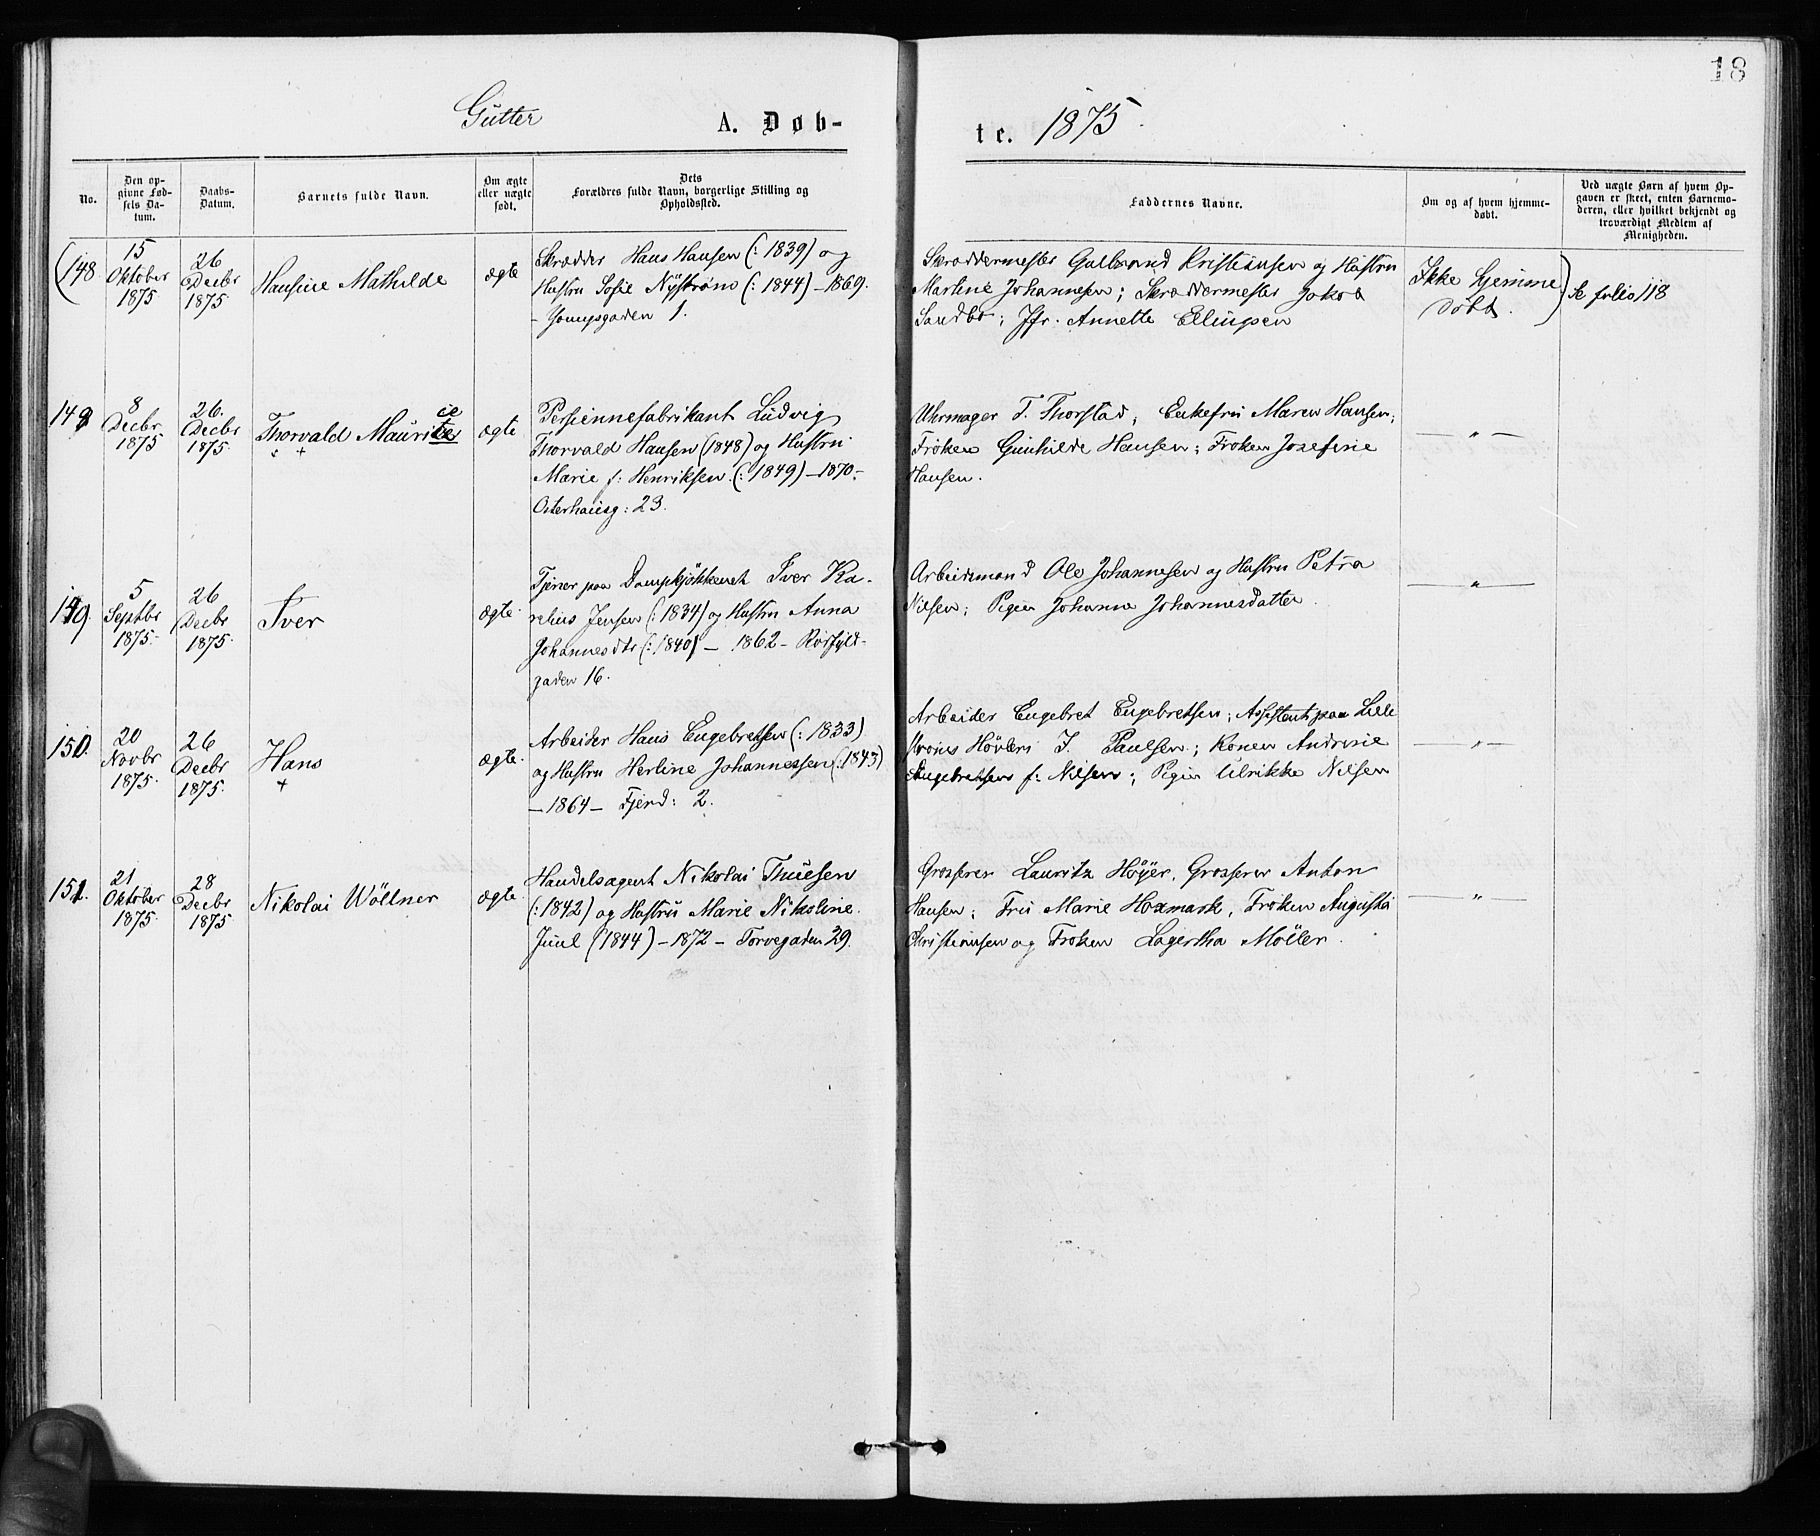 18
Gutter A. Døb- te. 1875.
No.
Den op-
givne Fød-
sels Da-
tum.
Daabs-
Datum.
Barnets fulde Navn.
Om ægte
eller uægte
født.
Dets
Forældres fulde Navn, borgerlige Stilling og
Opholdssted.
Faddernes Navne.
Om og af hvem hjemme-
døbt.
Ved uægte Børn af hvem Op-
gaven er skeet, enten Barnemo-
deren, eller hvilket bekjendt og
troværdigt Medlem af
Menigheden.
(148.
15
Oktober
1875
26
Decbr
1875
Hansine Mathilde
ægte
Skrædder Hans Hansen (: 1839) og
Hustru Sofie Nÿstrøm (: 1844) – 1869.
– gaden 1.
Skræddermester Gulbrand Kristiansen og Hustru
Martine Johannesen; Skræddermester Jakob
Sandbo; Jfr. Annette Ellingsen
Ikke hjemme
døbt. )
se folio 118
149
8
Decbr
1875
26.
Decbr
1875.
Thorvald Mauritz
ægte
Persiennefabrikant Ludvig
Thorvald Hansen (1848) og Hustru
Marie f: Henriksen. (: 1849) – 1870 –
Osterhausg: 23.
Uhrmager T. Thorstad; Enkefru Maren Hansen;
Frøken Gunhilde Hansen; Frøken Josefine
Hansen.
— „ —
149.
5
Septbr
1875.
26
Decbr
1875.
Iver
ægte
Tjener paa Dampkjøkkenet Iver Ka-
relius Jensen (: 1834) og Hustru Anna
Johannesdtr (: 1840) – 1862 –
gaden 16.
Arbeidsmand Ole Johannesen og Hustru Petra
Nilsen; Pigen Johanne Johannesdatter.
— „ —
150.
20
Novbr
1875.
26
Decbr
1875.
Hans
+
ægte.
Arbeider Hans Engebretsen (: 1833)
og Hustru Herline Johannessen (: 1843)
– 1864 – Fjerd: 2.
Arbeider Engebret Engebretsen; Assistent paa Lille
strøms Høvleri J. Paulsen; Konen Andrine
Engebretsen f: Nilsen; Pigen Ulrikke Nilsen
— „ —
151.
21
Oktober
1875.
28
Decbr
1875.
Nikolai Wöllner
ægte.
Handelsagent Nikolai Thuesen
(: 1842) og Hustru Marie Nikoline
Juul (1844) – 1872 – Torvegaden 29.
Grosserer Lauritz Høyer, Grosserer Anton
Hansen; Fru Marie Hoxmark, Frøken Augusta
Christiansen og Frøken Lagertha Møller.
— „ —